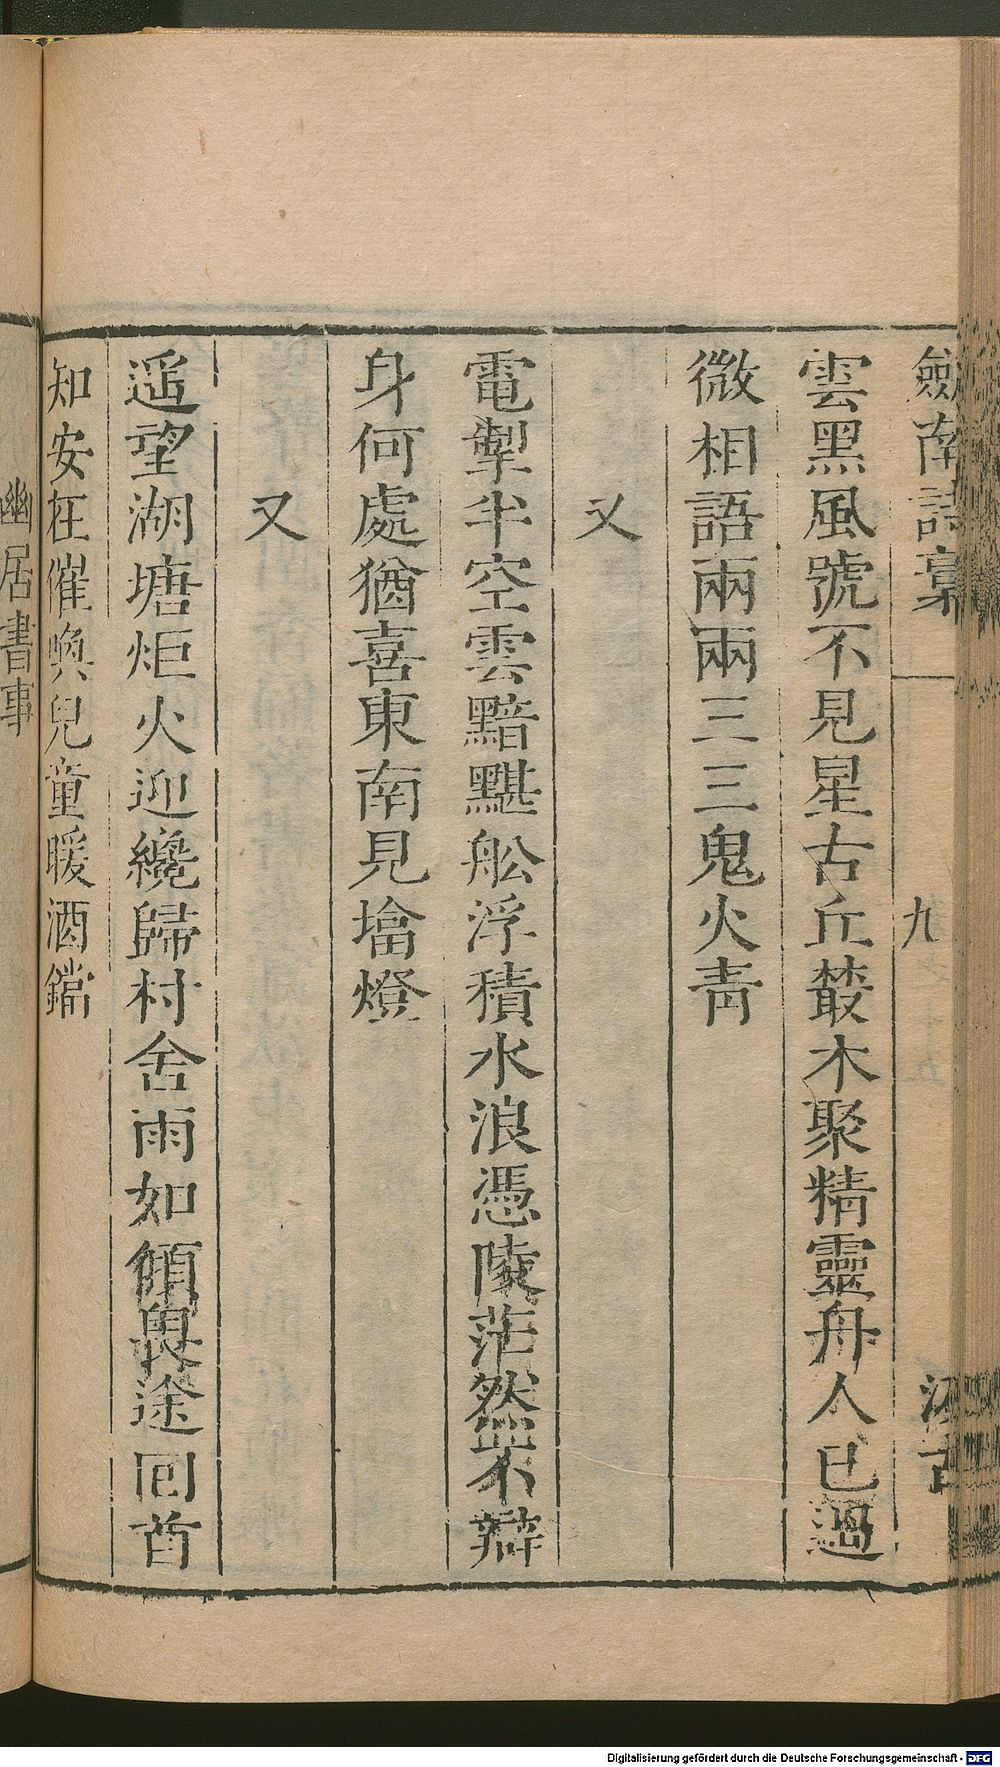 劒南詩稾
九
汲古
雲黑風號不見星古丘叢木聚精靈舟人已過
微相語兩兩三三鬼火青
又
電掣半空雲黯黮舩浮積水浪憑陵茫然不辯
身何處猶喜東南見㙮燈
又
遥望湖塘炬火迎纔歸村舍雨如傾畏途回首
知安在催喚兒童暖酒鐺
幽居書事
Digitalisierung gefördert durch die Deutsche Forschungsgemeinschaft - DFG